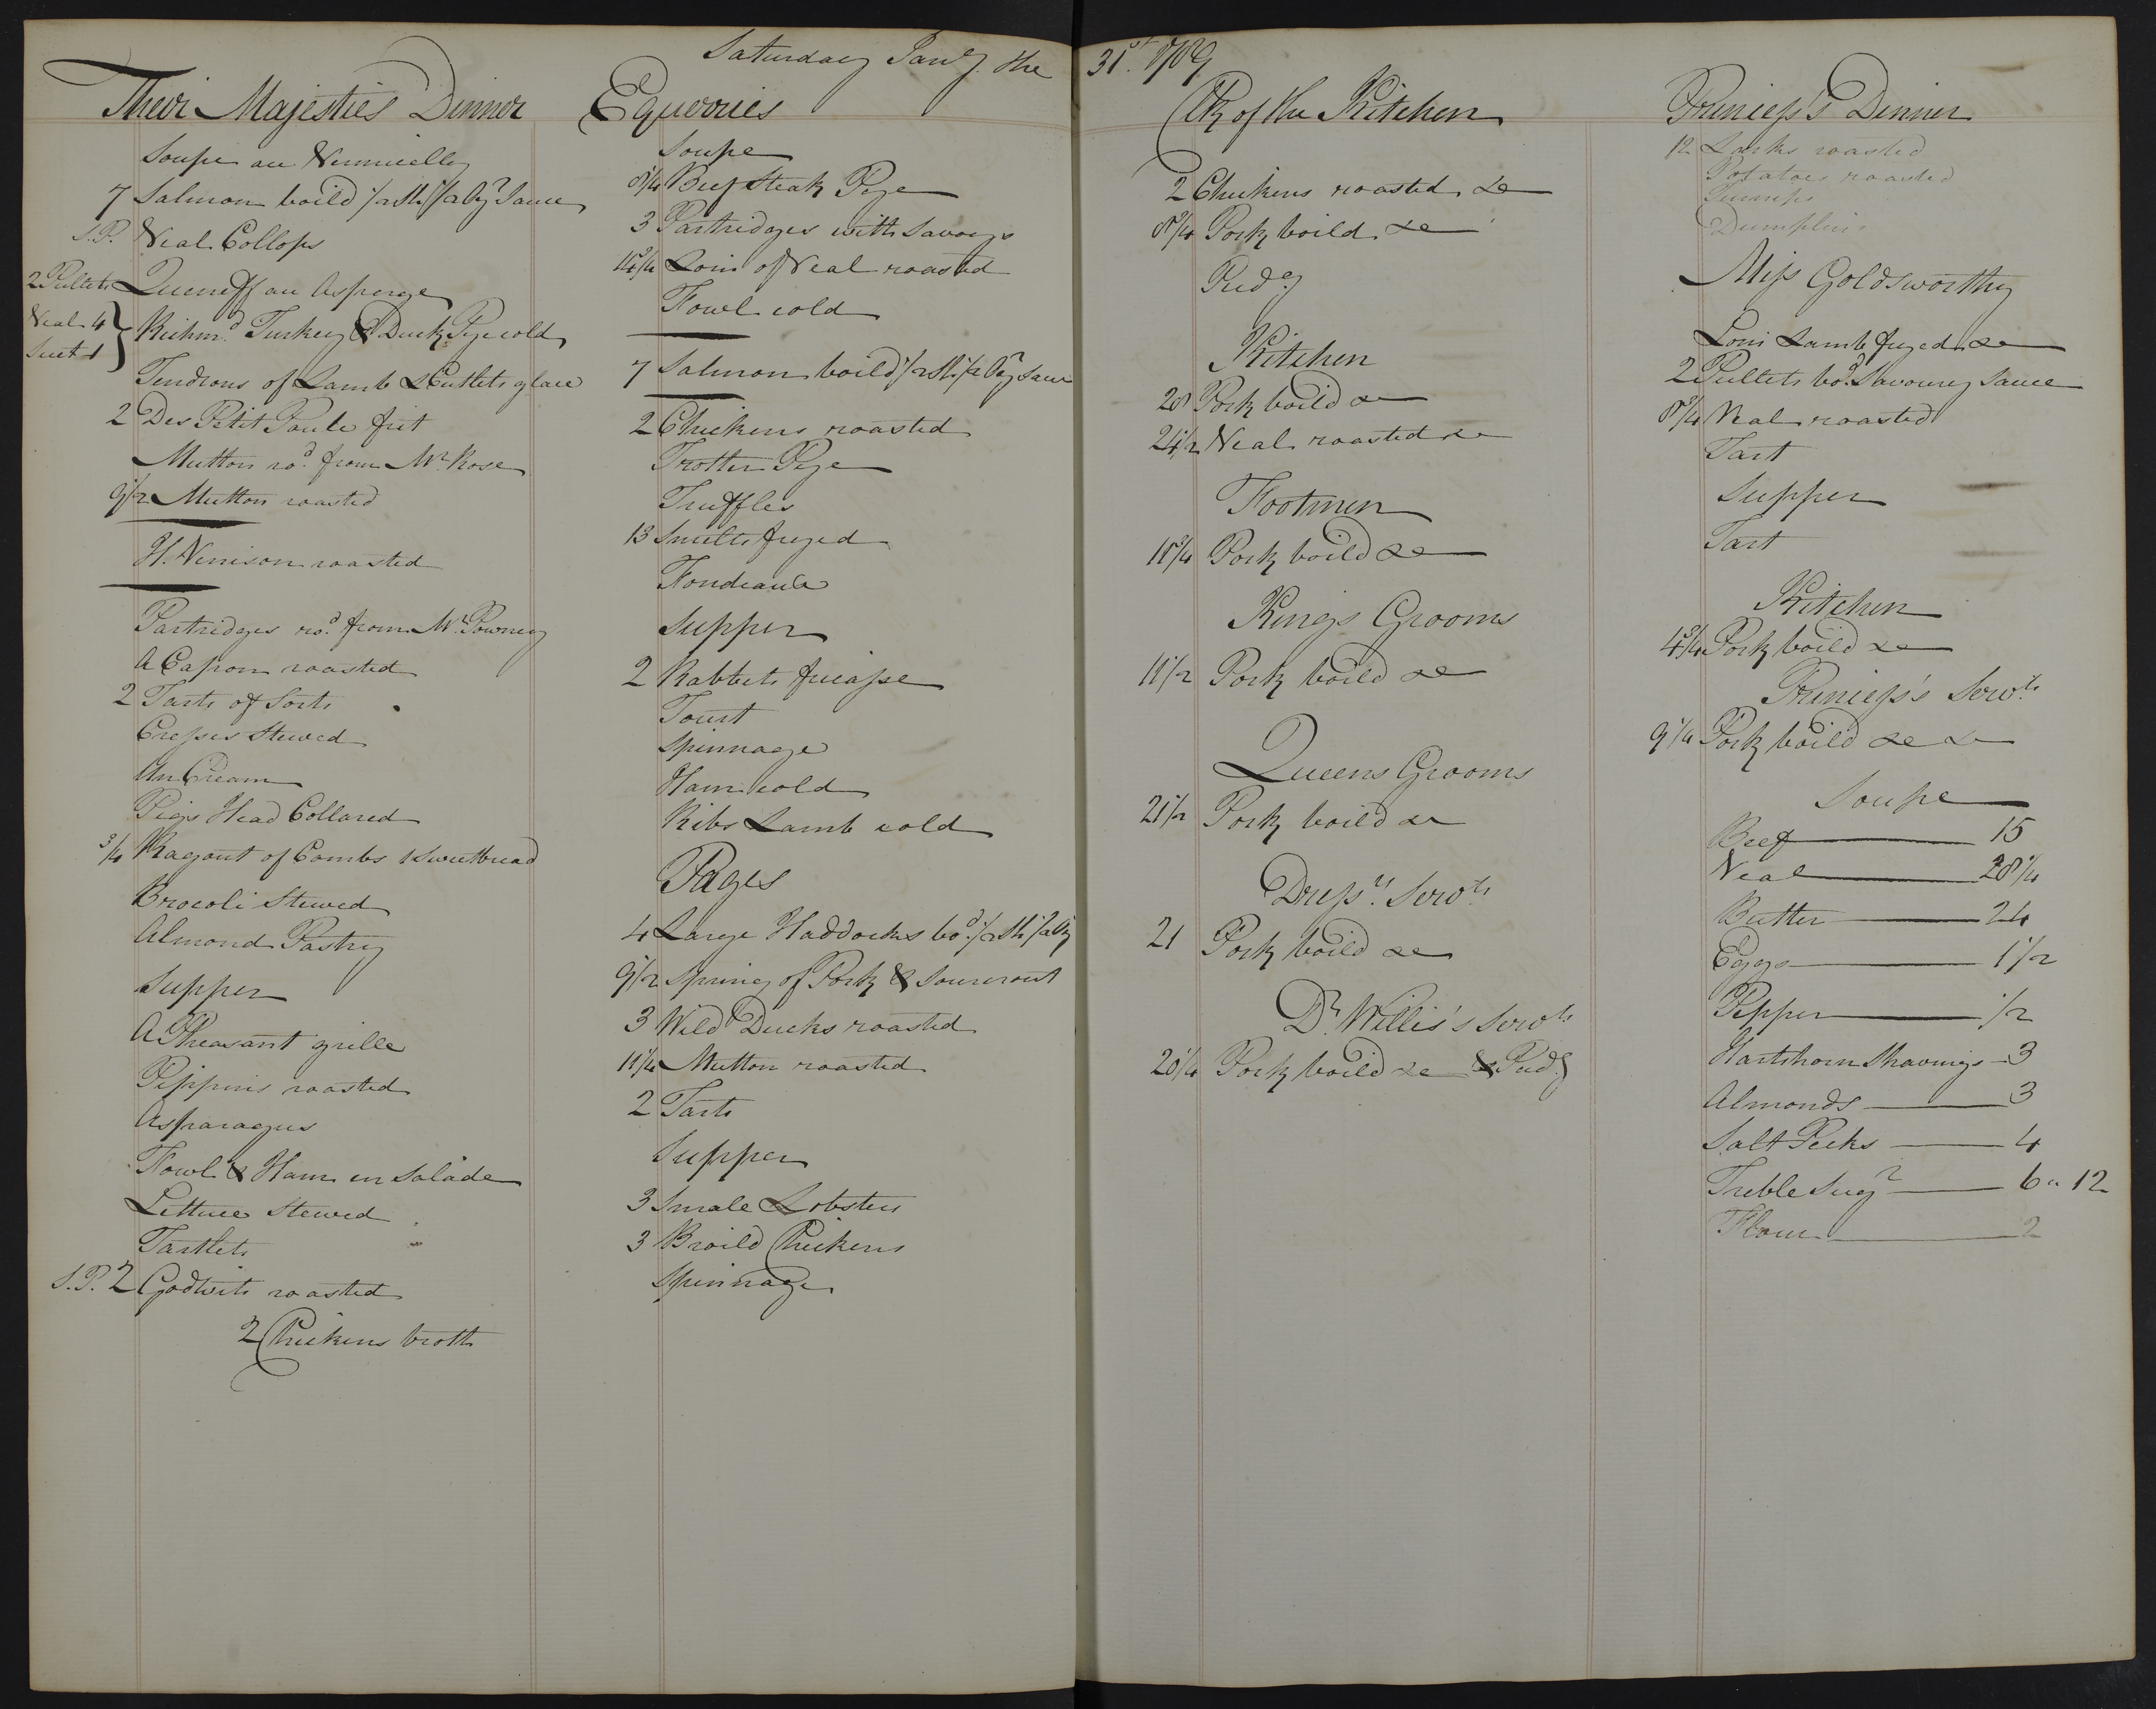 Saturday Jany. the 31st. 1789
Their Majesties Dinner
Soupe au Vermicelly
7 Salmon boild 1/2 Sh: 1/2 Oyr Sauce
S.P. Veal Collops
2 Pullets Queneff au Asperge
Veal 4 Suet 1 } Richmd. Turkey & Duck Pye cold
Tendrons of Lamb & Cutlets glace
2 Des Petit Poule frit
Mutton rod. from Mr. Rose
9 1/2 Mutton roasted
H. Venison roasted
Partridges rod. from Mr. Powney
A Capon roasted
2 Tarts of Sorts
Cresses Stewed
An Cream
Pigs Head Collared
3/4 Ragout of Combs 1 Sweetbread
Brocoli Stewed
Almond Pastry
Supper
A Pheasant grille
Pippins roasted
Asparagus
Fowl & Ham en Salade
Lettuce Stewed
Tartlets
S.P. 2 Godwits roasted
2 Chickens broth
Equerries
Soupe
8 1/4 Beef Steak Pye
3 Partridges with Savoys
Loin of Veal roasted
Fowl cold
7 Salmon boild 1/2 Sh: 1/2 Oyr Sauce
2 Chickens roasted
Trotter Pye
Truffles
13 Smelts fryed
Fondeaux
Supper
2 Rabbets fricasse
Tourt
Spinnage
Ham cold
Ribs Lamb cold
Pages
4 Large Haddocks bod. 1/2 Sh: 1/2 Oy
9 1/2 Spring of Pork & Sourcrout
3 Wild Ducks roasted
11 1/4 Mutton roasted
2 Tarts
Supper
3 Smale Lobsters
3 Broild Chickens
Spinnage
Clk of the Kitchen
2 Chickens roasted &c
8 3/4 Pork boild &c
Pudg
Kitchen
28 Pork boild &c
24 1/2 Veal roasted &c
Footmen
18 3/4 Pork boild &c
Kings Grooms
11 1/2 Pork boild &c
Queens Grooms
21 1/2 Pork boild &c
Dressrs. Servts
21 Pork boild &c
Dr. Willis's Servts
20 1/4 Pork boild &c & Pudg
Princess's Dinner
12 Larks roasted
Potatoes roasted
Turneps
Dumplins
Miss Goldsworthy
Loin Lamb fryed &c
2 Pullets bod. Savoury Sauce
8 3/4 Veal roasted
Tart
Supper
Tart
Kitchen
4 3/4 Pork boild &c
Princess's Servts
9 1/4 Pork boild &c &c
Soupe
Beef 15
Veal 28 1/4
Butter 24
Eggs 1 1/2
Pepper 1/2
Hartshorn Shavings 3
Almonds 3
Salt Pecks 4
Treble Sugr 6 " 12
Flour 2